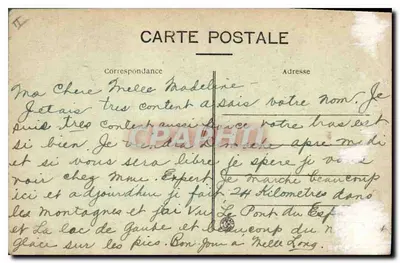 CARTE POSTALE
Correspondance
Adresse
Ma Chere Melle Madeline -
J'etais tres content a sais votre nom. Je
suis tres content aussi votre bras est
si bien. Je apre midi
et si vous sera libre Je spere je vous
voir chez Mme. Expert Je marche beaucoup
ici et adjourdheu je fait 24 Kilometres dans
les montagnes et j'ai vu Le Pont du
et La lac de Gaube et beaucoup du
Glace sur les pics. Bon Jour a Melle Long.